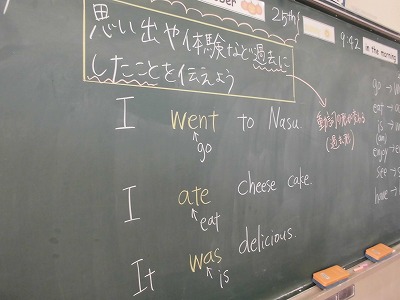 25th
9:42
in the morning
思い出や体験など過去に
したことを伝えよう
I went to Nasu.
go
(過去形)
I ate cheese cake.
eat
It was delicious.
is
go →
eat →
is →
(am)
enjoy →
see →
have →